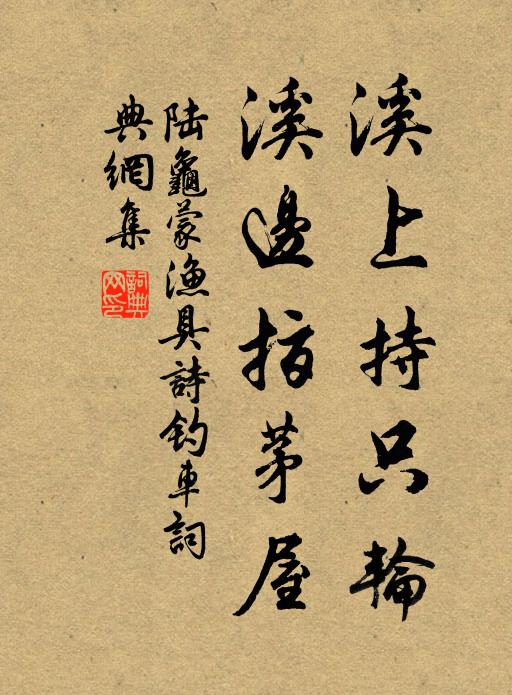 溪上持只輪
溪邊指茅屋
陸龜蒙漁具詩釣車詞
典網集
詞典网印